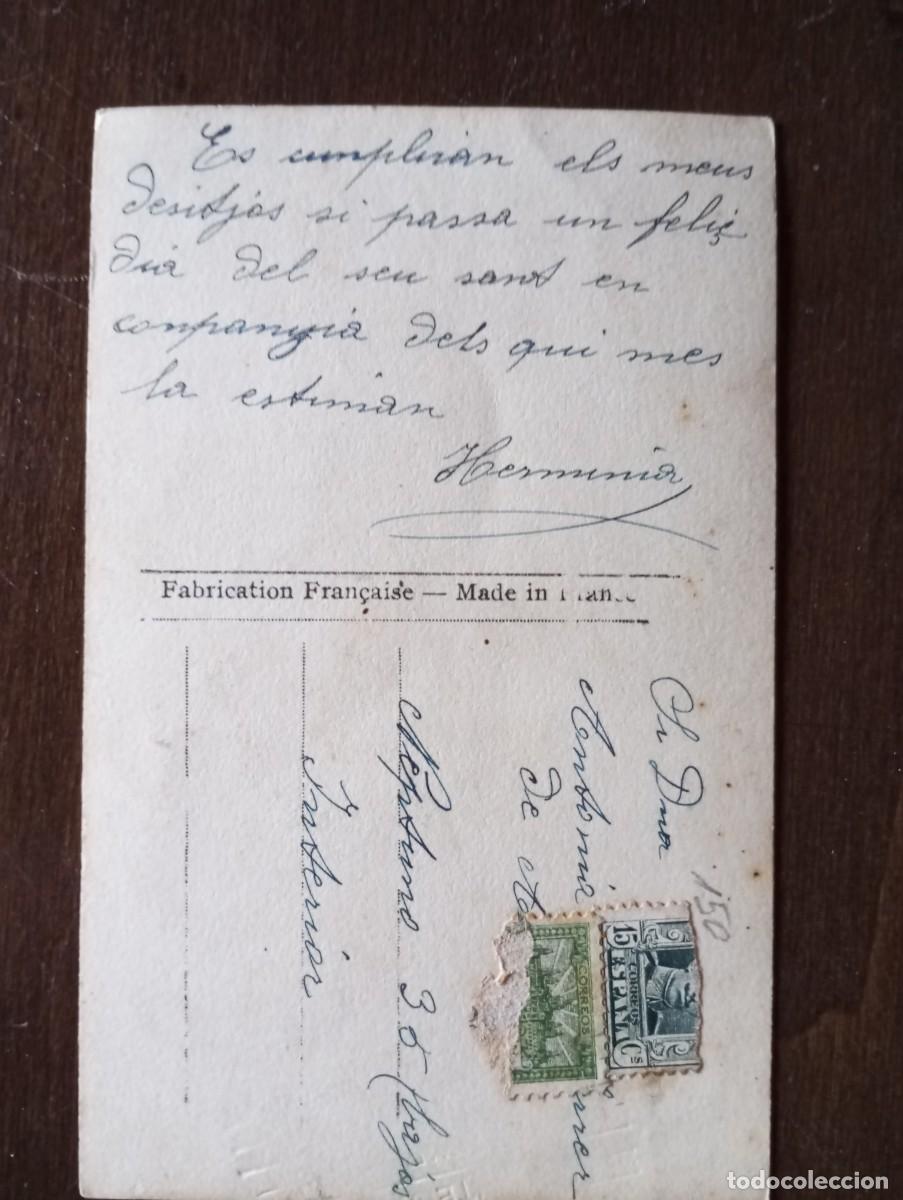 Es cumpliran els meus
desitjos si passa un feliç
dia del seu sant en
conpanyia dels qui mes
la estiman
Herminia
Fabrication Française — Made in France
Sr Dna
Antonia
de
Neptuno 36 bajos
Interior
150
15 Cs
CORREOS
ESPAÑA
CORREOS
todocoleccion